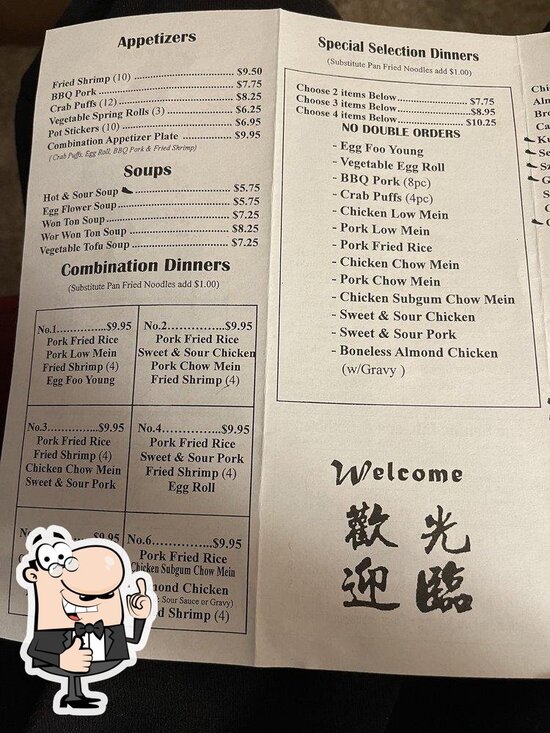 Appetizers
Fried Shrimp (10) ........ $9.50
BBQ Pork ........ $7.75
Crab Puffs (12) ........ $8.25
Vegetable Spring Rolls (3) ........ $6.25
Pot Stickers (10) ........ $6.95
Combination Appetizer Plate ........ $9.95
( Crab Puffs, Egg Roll, BBQ Pork & Fried Shrimp)
Soups
Hot & Sour Soup ........ $5.75
Egg Flower Soup ........ $5.75
Won Ton Soup ........ $7.25
Wor Won Ton Soup ........ $8.25
Vegetable Tofu Soup ........ $7.25
Combination Dinners
(Substitute Pan Fried Noodles add $1.00)
No.1..............$9.95
Pork Fried Rice
Pork Low Mein
Fried Shrimp (4)
Egg Foo Young
No.2...............$9.95
Pork Fried Rice
Sweet & Sour Chicken
Pork Chow Mein
Fried Shrimp (4)
No.3...............$9.95
Pork Fried Rice
Fried Shrimp (4)
Chicken Chow Mein
Sweet & Sour Pork
No.4...............$9.95
Pork Fried Rice
Sweet & Sour Pork
Fried Shrimp (4)
Egg Roll
$9.95
No.6...............$9.95
Pork Fried Rice
Chicken Subgum Chow Mein
Chicken
Sour Sauce or Gravy)
Shrimp (4)
Special Selection Dinners
(Substitute Pan Fried Noodles add $1.00)
Choose 2 items Below........ $7.75
Choose 3 items Below........ $8.95
Choose 4 items Below........ $10.25
NO DOUBLE ORDERS
- Egg Foo Young
- Vegetable Egg Roll
- BBQ Pork (8pc)
- Crab Puffs (4pc)
- Chicken Low Mein
- Pork Low Mein
- Pork Fried Rice
- Chicken Chow Mein
- Pork Chow Mein
- Chicken Subgum Chow Mein
- Sweet & Sour Chicken
- Sweet & Sour Pork
- Boneless Almond Chicken
(w/Gravy )
Welcome
歡 光
迎 臨